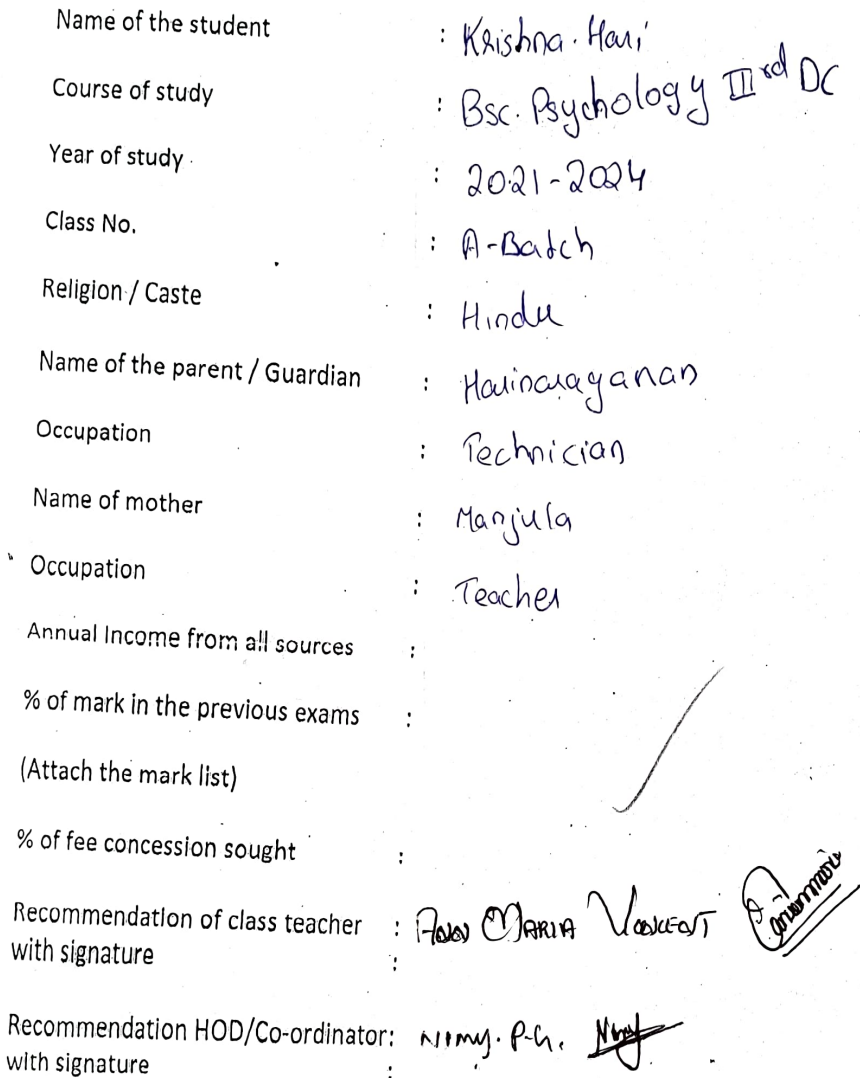 Name of the student : Krishna. Hari
Course of study : Bsc. Psychology IIIrd DC
Year of study : 2021-2024
Class No. : A-Batch
Religion / Caste : Hindu
Name of the parent / Guardian : Harinarayanan
Occupation : Technician
Name of mother : Manjula
Occupation : Teacher
Annual Income from all sources :
% of mark in the previous exams :
(Attach the mark list)
% of fee concession sought :
Recommendation of class teacher : Ann Maria Vincent
with signature :
Recommendation HOD/Co-ordinator: Nimy. P.G.
with signature :